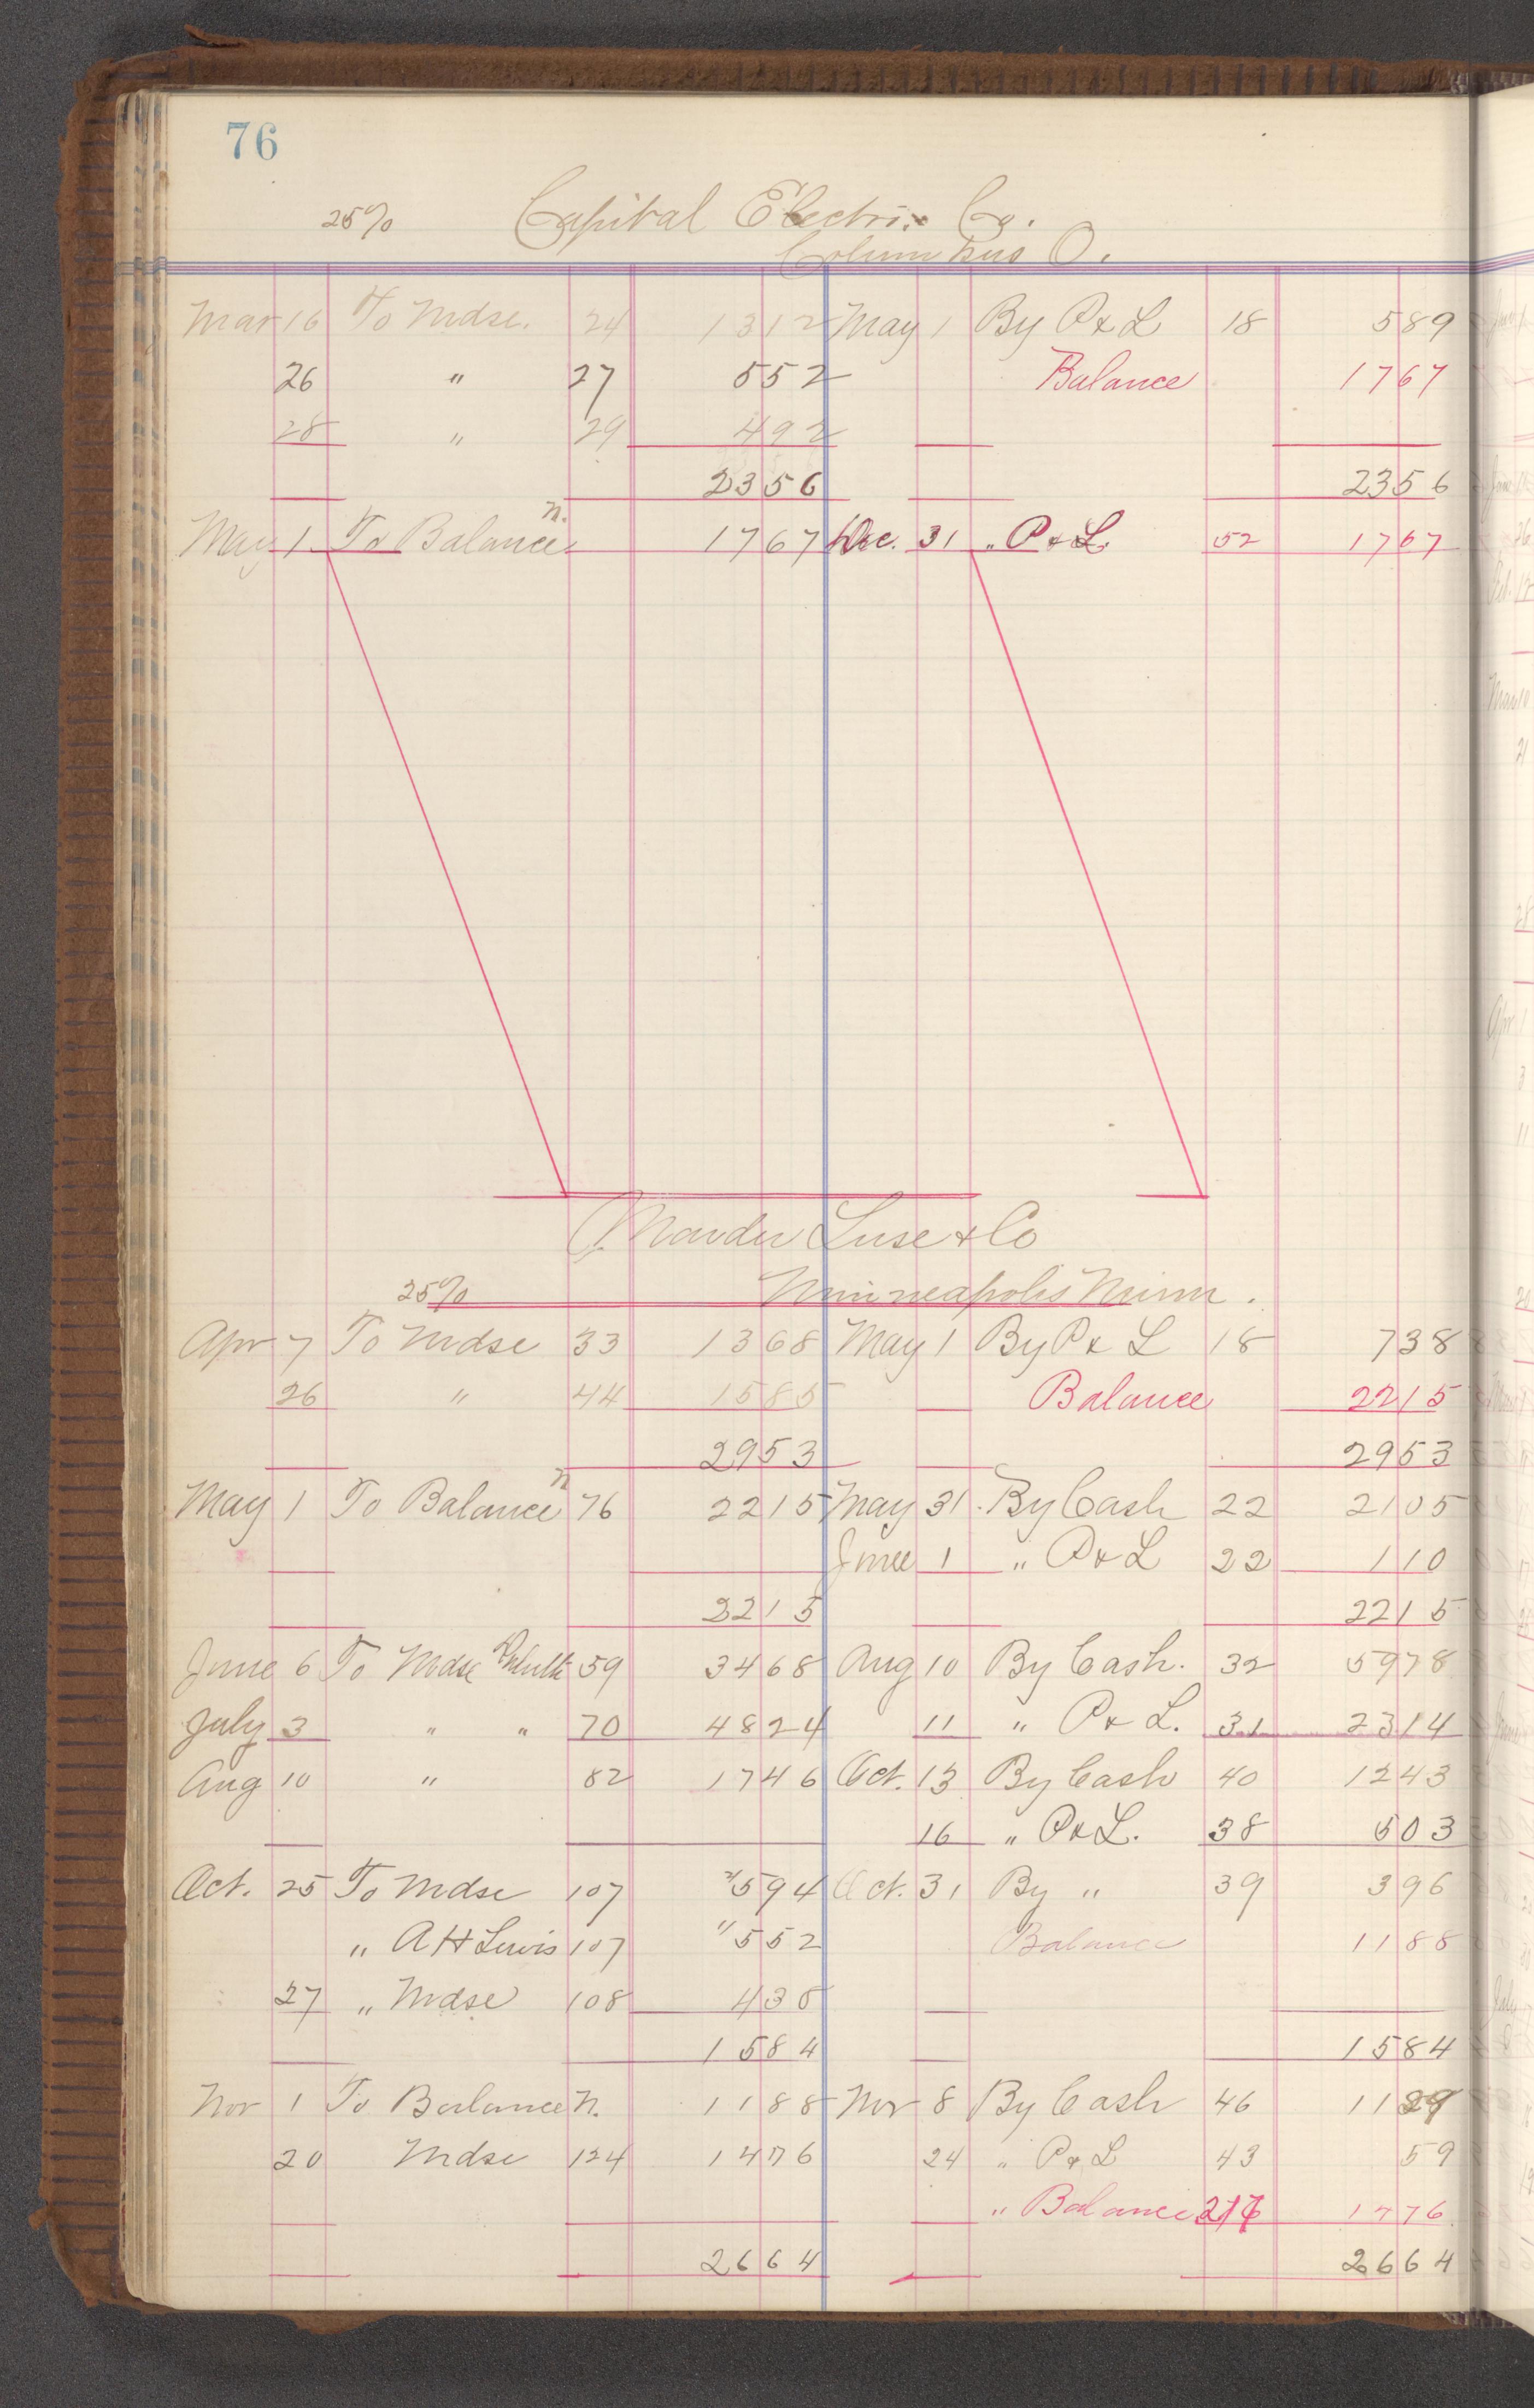 76
25% Capital Electric Co.
Columbus O.
Mar 16 To Mdse. 24 1312 May 1 By P & L 18 589
26 " 27 552 Balance 1767
28 " 29 492
2356 2356
May 1 To Balance n. 1767 Dec. 31 " P & L. 52 1767
Marder Luse & Co
25% Minneapolis Minn.
Apr 7 To Mdse 33 1368 May 1 By P & L 18 738
26 " 44 1585 Balance 2215
2953 2953
May 1 To Balance n 76 2215 May 31 By Cash 22 2105
June 1 " P & L 22 110
2215 2215
June 6 To Mdse Duluth 59 3468 Aug 10 By Cash. 32 5978
July 3 " " 70 4824 11 " P & L. 31 2314
Aug 10 " 82 1746 Oct. 13 By Cash 40 1243
16 " P & L. 38 503
Oct. 25 To Mdse 107 594 Oct. 31 By " 39 396
" A H Lewis 107 552 Balance 1188
27 " Mdse 108 438
1584 1584
Nov 1 To Balance n. 1188 Nov 8 By Cash 46 1129
20 Mdse 124 1476 24 " P & L 43 59
" Balance 1476
2664 2664